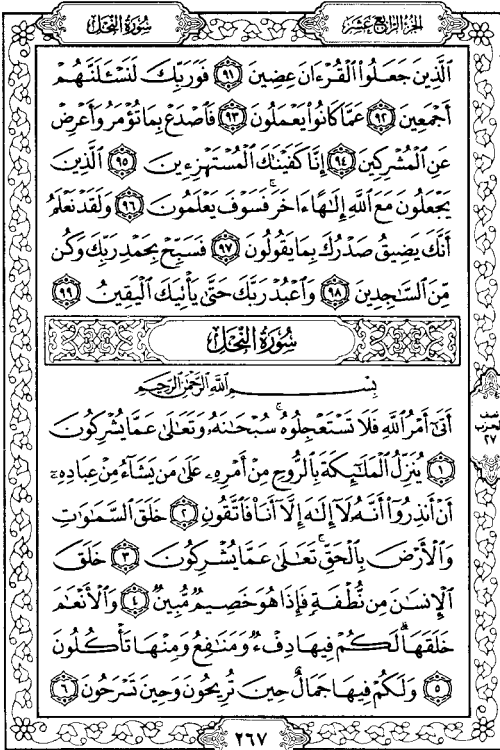 الجزء الرابع عشر
سورة النحل
الَّذِينَ جَعَلُوا الْقُرْءَانَ عِضِينَ ٩١ فَوَرَبِّكَ لَنَسْـَٔلَنَّهُمْ
أَجْمَعِينَ ٩٢ عَمَّا كَانُوا يَعْمَلُونَ ٩٣ فَاصْدَعْ بِمَا تُؤْمَرُ وَأَعْرِضْ
عَنِ الْمُشْرِكِينَ ٩٤ إِنَّا كَفَيْنَٰكَ الْمُسْتَهْزِءِينَ ٩٥ الَّذِينَ
يَجْعَلُونَ مَعَ اللَّهِ إِلَٰهًا ءَاخَرَ ۚ فَسَوْفَ يَعْلَمُونَ ٩٦ وَلَقَدْ نَعْلَمُ
أَنَّكَ يَضِيقُ صَدْرُكَ بِمَا يَقُولُونَ ٩٧ فَسَبِّحْ بِحَمْدِ رَبِّكَ وَكُن
مِّنَ السَّٰجِدِينَ ٩٨ وَاعْبُدْ رَبَّكَ حَتَّىٰ يَأْتِيَكَ الْيَقِينُ ٩٩
سُورَةُ النَّحْلِ
بِسْمِ اللَّهِ الرَّحْمَٰنِ الرَّحِيمِ
أَتَىٰٓ أَمْرُ اللَّهِ فَلَا تَسْتَعْجِلُوهُ ۚ سُبْحَٰنَهُۥ وَتَعَٰلَىٰ عَمَّا يُشْرِكُونَ
١ يُنَزِّلُ الْمَلَٰٓئِكَةَ بِالرُّوحِ مِنْ أَمْرِهِۦ عَلَىٰ مَن يَشَآءُ مِنْ عِبَادِهِۦٓ
أَنْ أَنذِرُوٓا أَنَّهُۥ لَآ إِلَٰهَ إِلَّآ أَنَا۠ فَاتَّقُونِ ٢ خَلَقَ السَّمَٰوَٰتِ
وَالْأَرْضَ بِالْحَقِّ ۚ تَعَٰلَىٰ عَمَّا يُشْرِكُونَ ٣ خَلَقَ
الْإِنسَٰنَ مِن نُّطْفَةٍ فَإِذَا هُوَ خَصِيمٌ مُّبِينٌ ٤ وَالْأَنْعَٰمَ
خَلَقَهَا ۗ لَكُمْ فِيهَا دِفْءٌ وَمَنَٰفِعُ وَمِنْهَا تَأْكُلُونَ
٥ وَلَكُمْ فِيهَا جَمَالٌ حِينَ تُرِيحُونَ وَحِينَ تَسْرَحُونَ ٦
نصف
الحزب
٢٧
٢٦٧